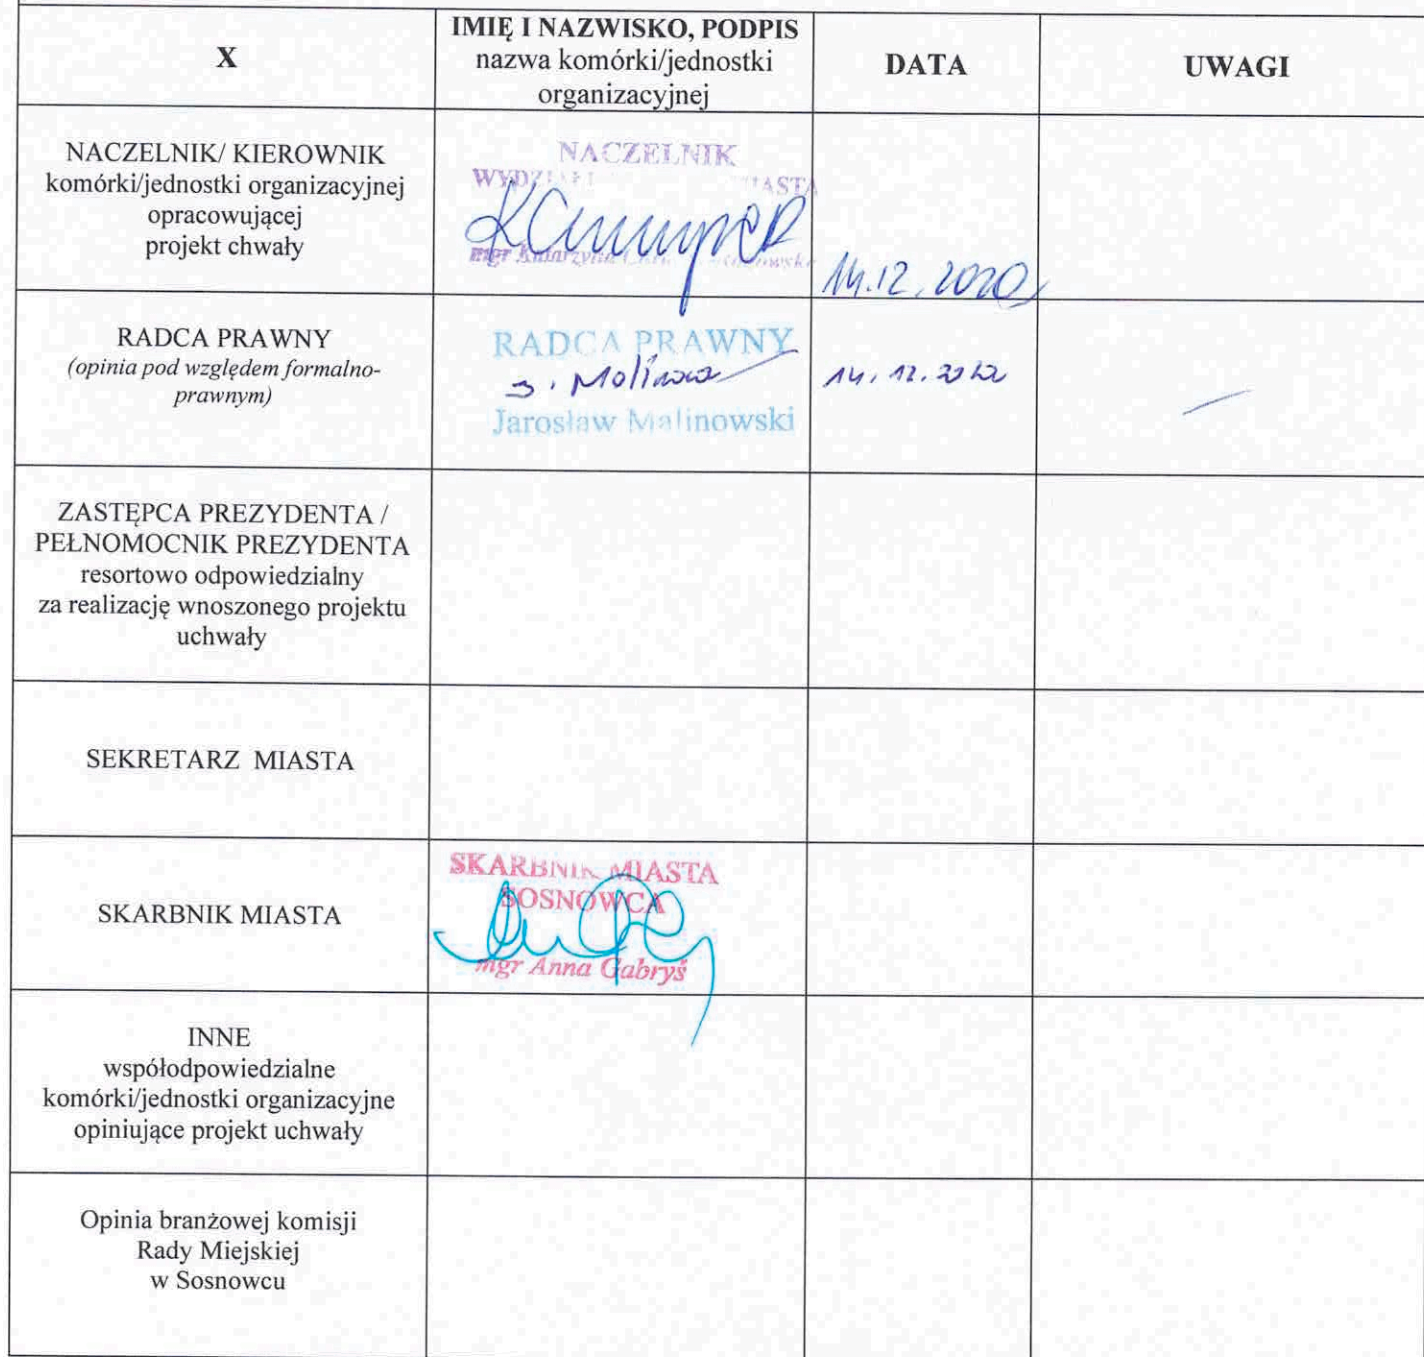 X
IMIĘ I NAZWISKO, PODPIS
nazwa komórki/jednostki
organizacyjnej
DATA
UWAGI
NACZELNIK/ KIEROWNIK
komórki/jednostki organizacyjnej
opracowującej
projekt chwały
NACZELNIK
mgr Katarzyna
14.12.2020
RADCA PRAWNY
(opinia pod względem formalno-
prawnym)
RADCA PRAWNY
Jarosław Malinowski
14.12.2020
ZASTĘPCA PREZYDENTA /
PEŁNOMOCNIK PREZYDENTA
resortowo odpowiedzialny
za realizację wnoszonego projektu
uchwały
SEKRETARZ MIASTA
SKARBNIK MIASTA
SKARBNIK MIASTA
SOSNOWCA
mgr Anna Gabryś
INNE
współodpowiedzialne
komórki/jednostki organizacyjne
opiniujące projekt uchwały
Opinia branżowej komisji
Rady Miejskiej
w Sosnowcu